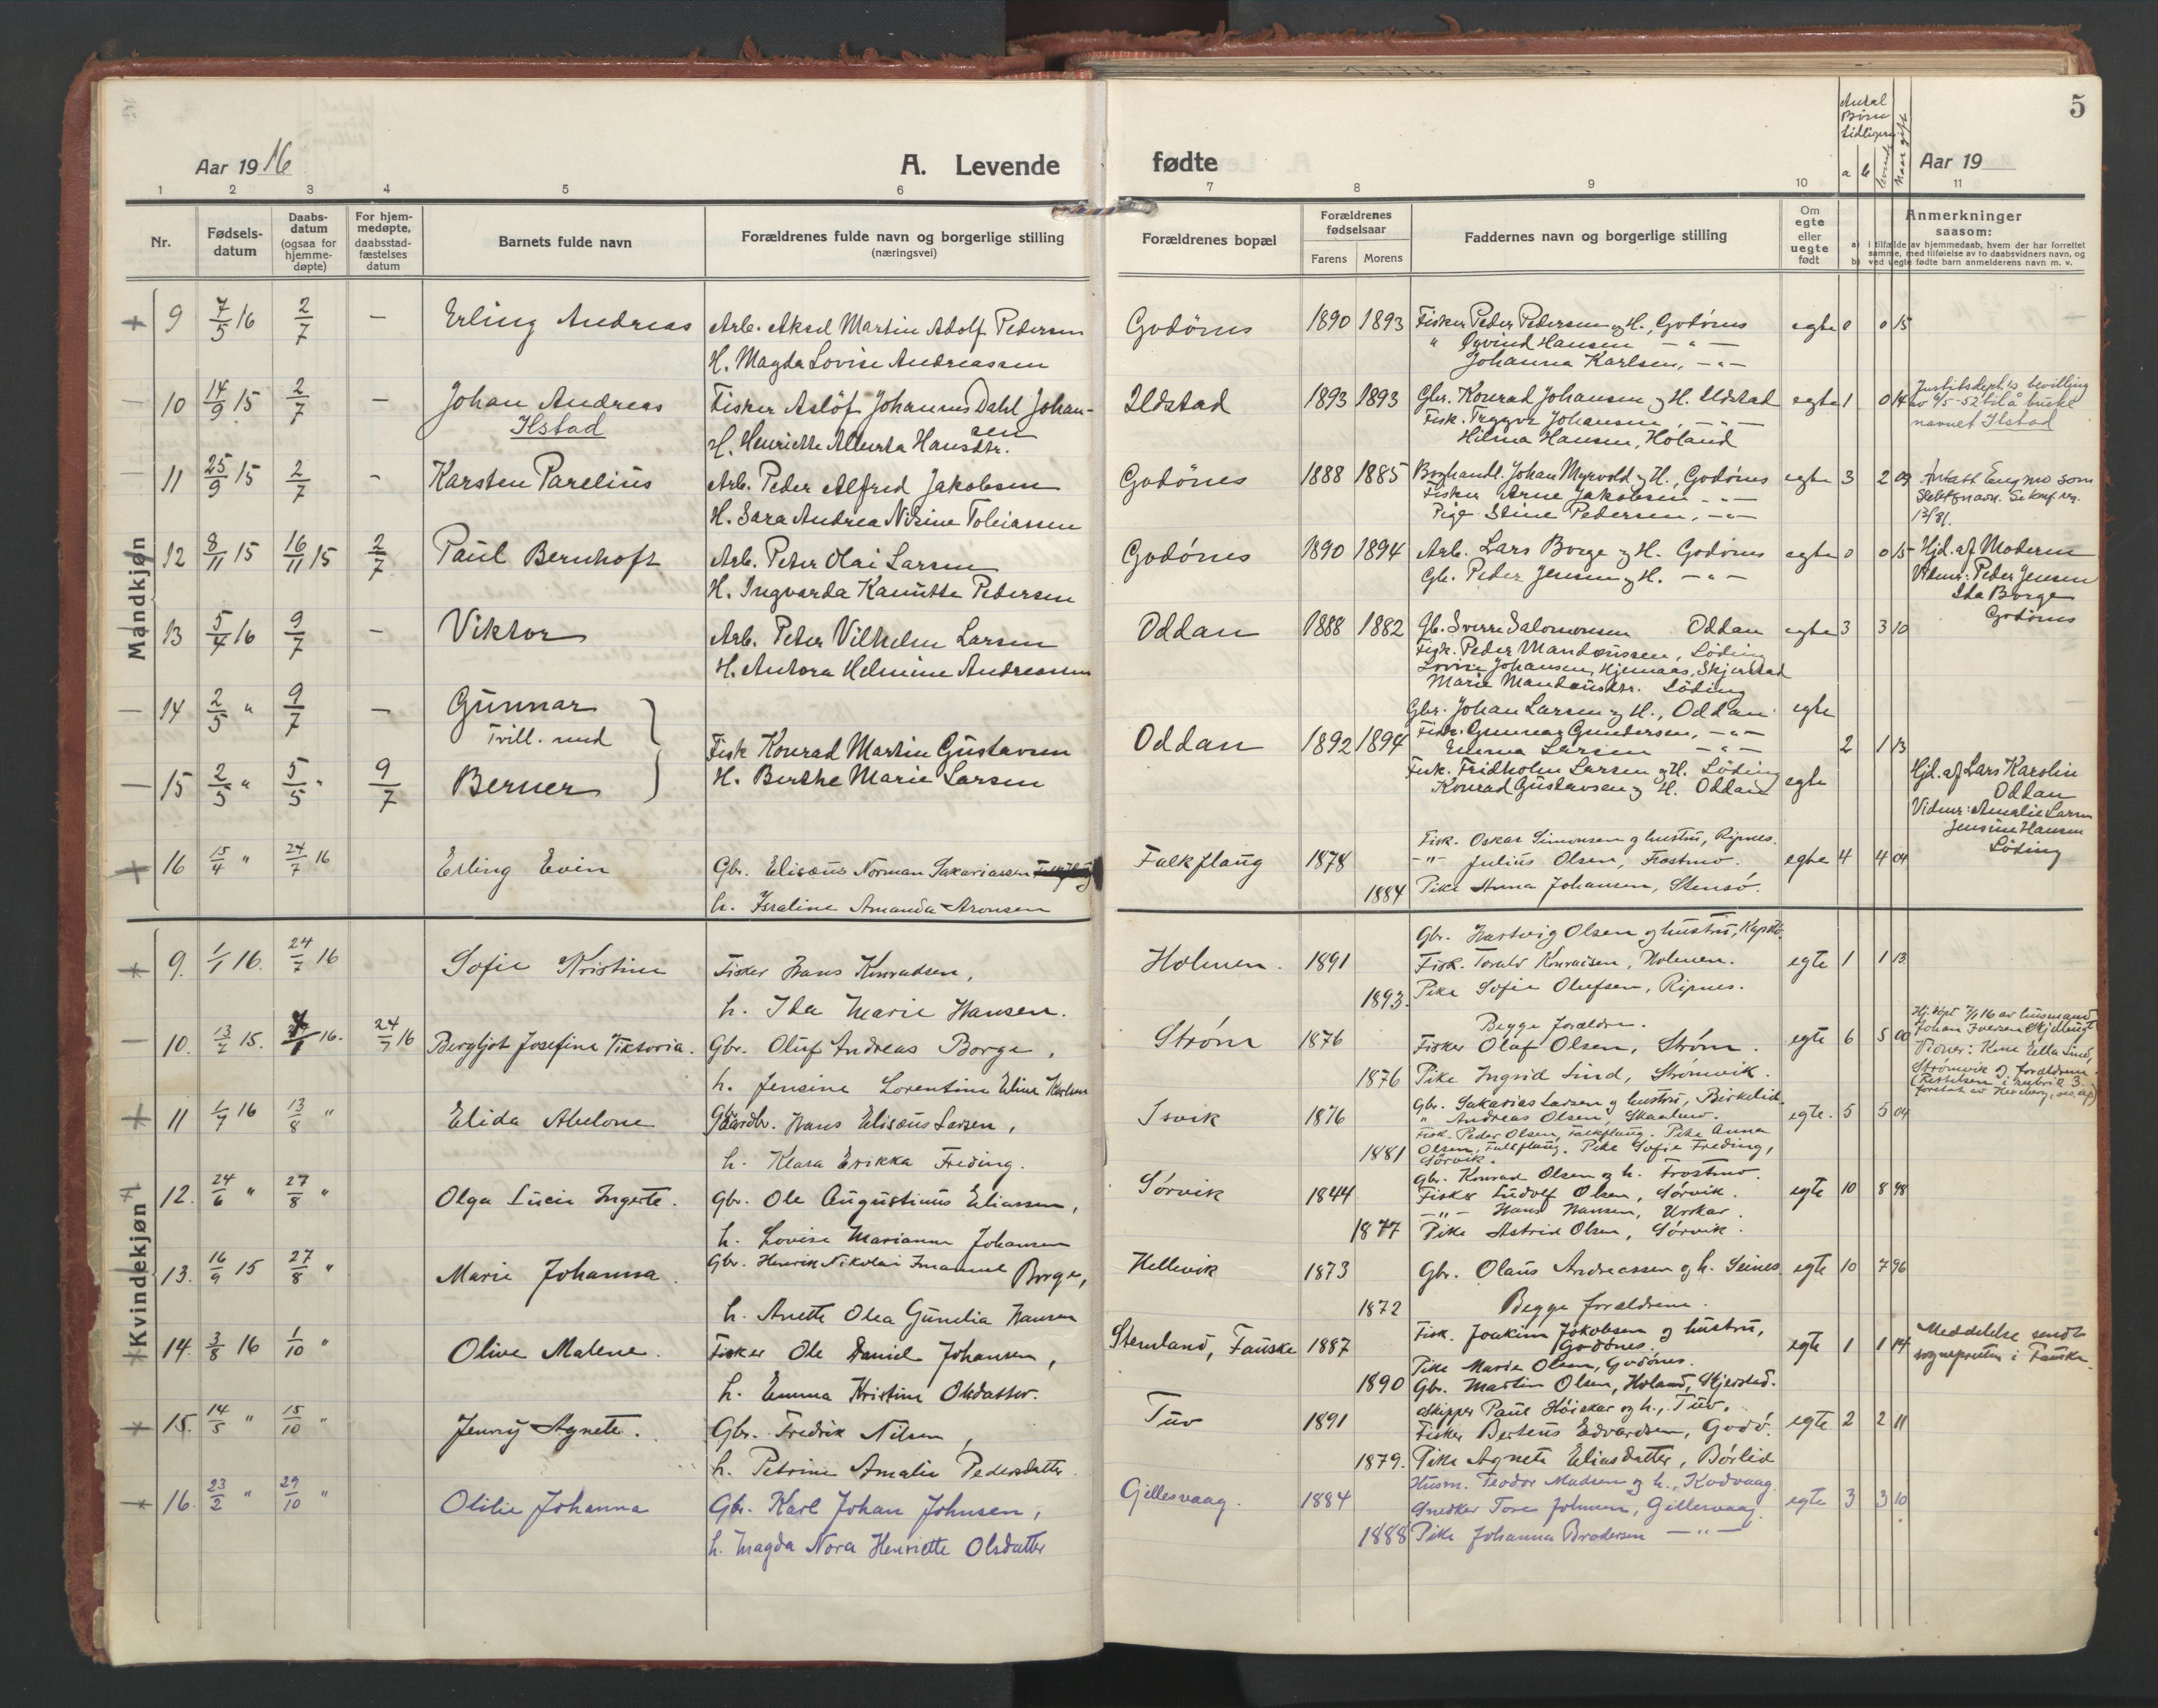 5
Aar 1916
A. Levende
fødte
Antal Børn tidligere
a b levende Naar gift
Aar 19
1 2 3 4 5 6 7 8 9 10 11
Nr.
Fødsels-datum
Daabs-datum (ogsaa for hjemme-døpte)
For hjem-medøpte, daabsstad-fæstelses datum
Barnets fulde navn
Forældrenes fulde navn og borgerlige stilling (næringsvei)
Forældrenes bopæl
Forældrenes fødselsaar
Farens Morens
Faddernes navn og borgerlige stilling
Om egte eller uegte født
Anmerkninger saasom:
a) i tilfælde av hjemmedaab, hvem der har forrettet samme, med tilføielse av to daabsvidners navn, og
b) ved uegte fødte barn anmelderens navn m. v.
Mandkjøn
+ 9 7/5 16 2/7 — Erling Andreas Arb. Aksel Martin Adolf Pedersen
H. Magda Lovise Andreassen
Godönes 1890 1893 Fisker Peder Pedersen og H., Godönes egte 0 0 15
" Øyvind Hansen — " —
Johanna Karlsen, — " —
— 10 14/9 15 2/7 — Johan Andreas Fisker Aslöf Johannes Dahl Johan-
Ilstad sen
H. Henriette Alberta Hansdtr.
Ildstad 1893 1893 Gbr. Konrad Johansen og H. Ildstad egte 1 0 14
Fisk. Tryggve Johansen, — " —
Hilma Hansen, Høland
Justitsdept.s bevilling
av 6/5-52 til å bruke
navnet Ilstad
— 11 25/9 15 2/7 - Karsten Parelius Arb. Peder Alfred Jakobsen
H. Sara Andrea Nisine Tobiassen
Godönes 1888 1885 Boghandl. Johan Myrvold og H., Godönes egte 3 2 09
Fisker Arne Jakobsen — " —
Pige Stine Pedersen, — " —
Antatt Engmo som
slektsnavn. Se
12 8/11 15 16/11 15 2/7 Paul Bernhoft Arb. Peter Olai Larsen
H. Ingvarda Kanutte Pedersen
Godónes 1890 1894 Arb. Lars Borge og H. Godónes egte 0 0 15
Gb. Peder Jensen og H. — " —
Hjd. af Moderen
Vidner: Peder Jensen
Ida Borge
Godönes
13 5/4 16 9/7 — Viktor Arb. Peter Vilhelm Larsen
H. Antora Helmine Andreassen
Oddan 1888 1882 Gb. Sverre Salomonsen Oddan egte 3 3 10
Fisk. Peder Mandeussen, Löding
Lovise Johansen, Hjemaas, Skjerstad
Marie Mandeusdtr. Löding
— 14 2/5 " 9/7 — Gunnar
Tvill. med
Fisk Konrad Martin Gustavsen
H. Berthe Marie Larsen
Oddan 1892 1894 Gbr. Johan Larsen og H., Oddan egte
Fisk. Gunnar Gundersen, — " —
Emma Larsen — " — 2 1 13
— 15 2/5 " 5/5 " 9/7 Berner
Fisk. Fridholm Larsen og H. Löding egte
Konrad Gustavsen og H. Oddan
Hjd. af Lars Karolin
Oddan
Vidner: Amalie Larsen
Jensine Hansen
Löding
+ 16 15/4 " 24/7 16 Erling Evin Gbr. Elisæus Norman Sakariassen
h. Israline Amanda Aronsen
Falkflaug 1878 1884 Fisk. Oskar Simonsen og hustru, Ripnes. egte 4 4 04
—"— Julius Olsen, Frostmo.
Pike Anna Johansen, Stensö.
Kvindekjøn
9. 1/1 16. 24/7 16 Sofie Kristine Fisker Hans Konradsen,
h. Ida Marie Hansen.
Holmen. 1891 1893. Gbr. Hartvig Olsen og hustru, egte 1 1 13
Fisk. Torald Konradsen, Holmen.
Pike Sofie Olufsen, Ripnes.
— 10. 13/7 15. 16. 24/7 16 Bergljot Josefine Viktoria. Gbr. Oluf Andreas Borge,
h. Jensine Lorentine Eline Karlsen
Strøm 1876 1876 Begge forældre. egte 6 5 00
Fisker Olaf Olsen, Strøm.
Pike Ingrid Lind, Strömvik.
Hj.döpt 7/1 16 av husmand
Johan Iversen
Vidner: Kone Lind,
Strømvik og forældrene.
(Rettelsen i rubrik 3
+ 11 1/7 16 13/8 " Elida Abelone Gaardbr. Hans Elisæus Larsen,
h. Klara Erikka Freding.
Isvik 1876 1881 Gbr. Sakarias Larsen og hustru, Birkelid. egte. 5 5 04
" Andreas Olsen, Skaalmo.
Fisk. Peder Olsen, Falkflaug. Pike Anna
Olsen, Falkflaug. Pike Sofie Freding,
Sörvik.
12. 24/6 " 27/8 " Olga Lucie Ingerte. Gbr. Ole Augustinus Eliassen,
h. Lovise Marianne Johansen
Sørvik 1844 1877 Gbr. Konrad Olsen og h. Frostmo. egte 10 8 98
Fisker Ludolf Olsen, Sörvik.
—"— Hans Hansen, Urskar.
Pike Astrid Olsen, Sørvik.
13. 16/9 15 27/8 " Marie Johanna. Gbr. Henrik Nikolai Imanuel Borge,
h. Anette Olea Gunelia Hansen
Hellevik 1873 1872 Gbr. Olaus Andreassen og h. Seines. egte 10 7 96
Begge forældrene.
14. 3/8 16 1/10 " Olive Malene. Fisker Ole Daniel Johansen,
h. Emma Kristine Olsdatter.
Stemland, Fauske 1887 1890 Fisk. Joakim Jakobsen og hustru, egte 1 1 14
Godönes.
Pike Marie Olsen, Godönes.
Gbr. Martin Olsen, Holand, Skjerstad.
Meddelelse sendt
sognepresten i Fauske.
15. 14/5 " 15/10 " Jenny Agnete. Gbr. Fredrik Nilsen,
h. Petrine Amalie Pedersdatter.
Tuv 1891 1879. Skipper Paul Höiskar og h., Tuv. egte 2 2 11
Fisker Berteus Edvardsen, Godö.
Pike Agnete Eliasdatter, Børlid
16. 23/2 " 29/10 " Olilie Johanna Gbr. Karl Johan Johnsen,
h. Magda Nora Henriette Olsdatter
Gillesvaag. 1884 1888 Husm. Teodor Madsen og h., Kodvaag. egte 3 3 10
Snedker Tore Johnsen, Gillesvaag.
Pike Johanna Brodersen —"—